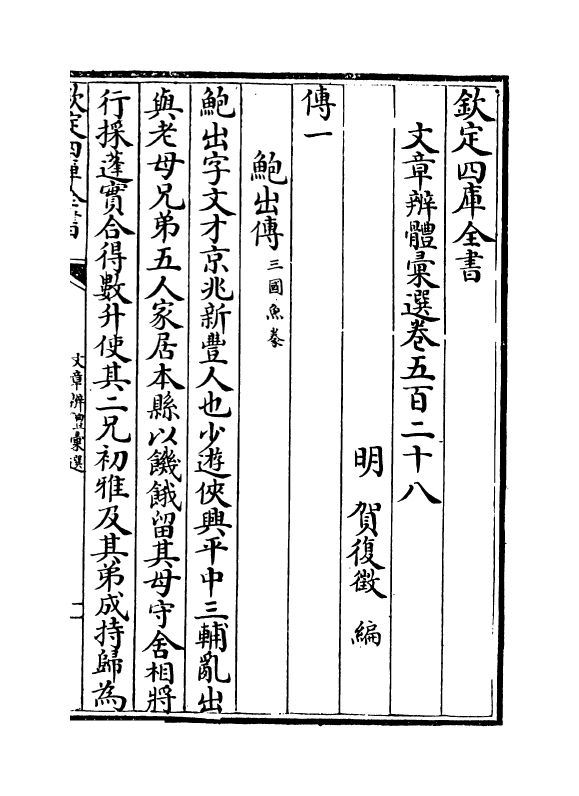 欽定四庫全書
文章辨體彙選卷五百二十八
明 賀復徵 編
傳一
鮑出傳 三國魚豢
鮑出字文才京兆新豐人也少遊俠興平中三輔亂出
與老母兄弟五人家居本縣以饑餓留其母守舍相將
行採蓬實合得數升使其二兄初雅及其弟成持歸為
欽定四庫全書
文章辨體彙選